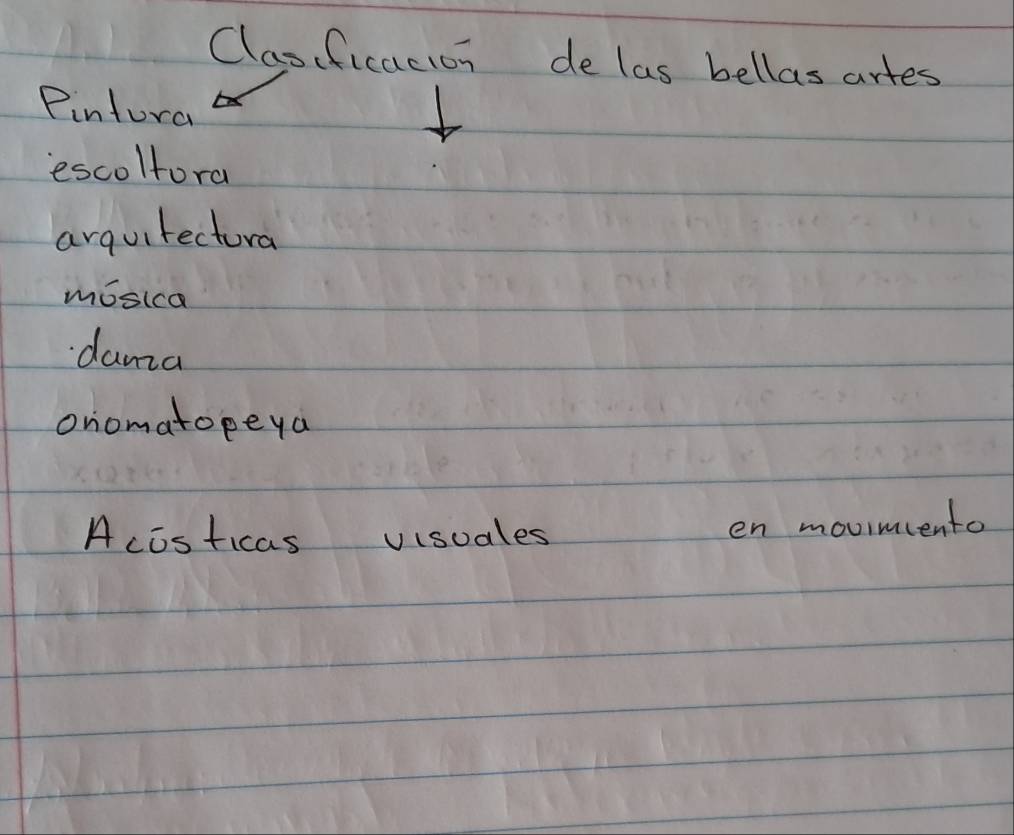 Clasificación de las bellas artes
Pintura
escoltora
arquitectura
música
danza
onomatopeya
Acústicas visuales en movimiento